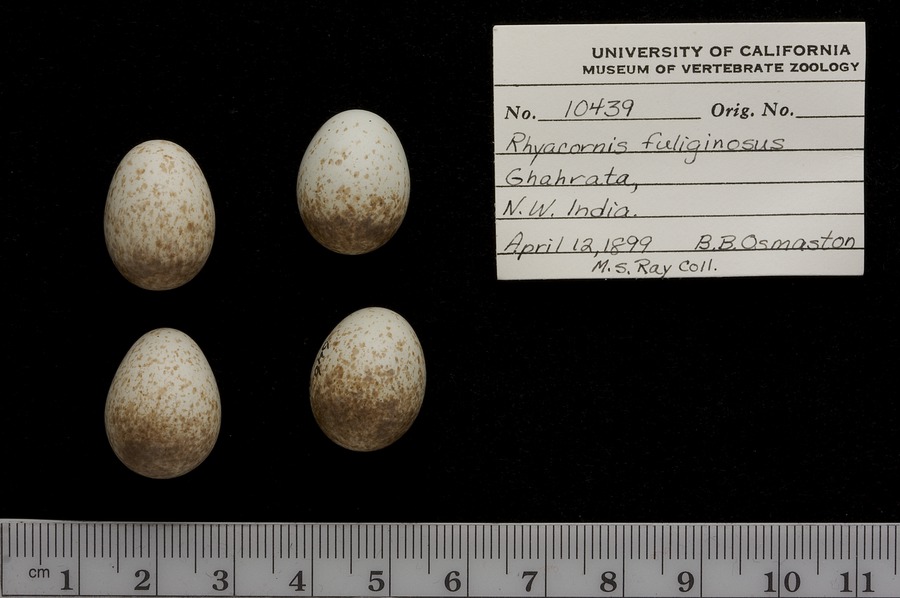 UNIVERSITY OF CALIFORNIA
MUSEUM OF VERTEBRATE ZOOLOGY
No. 10439 Orig. No.
Rhyacornis fuliginosus
Ghahrata,
N.W. India.
April 12, 1899 B.B. Osmaston
M.S. Ray Coll.
cm 1 2 3 4 5 6 7 8 9 10 11